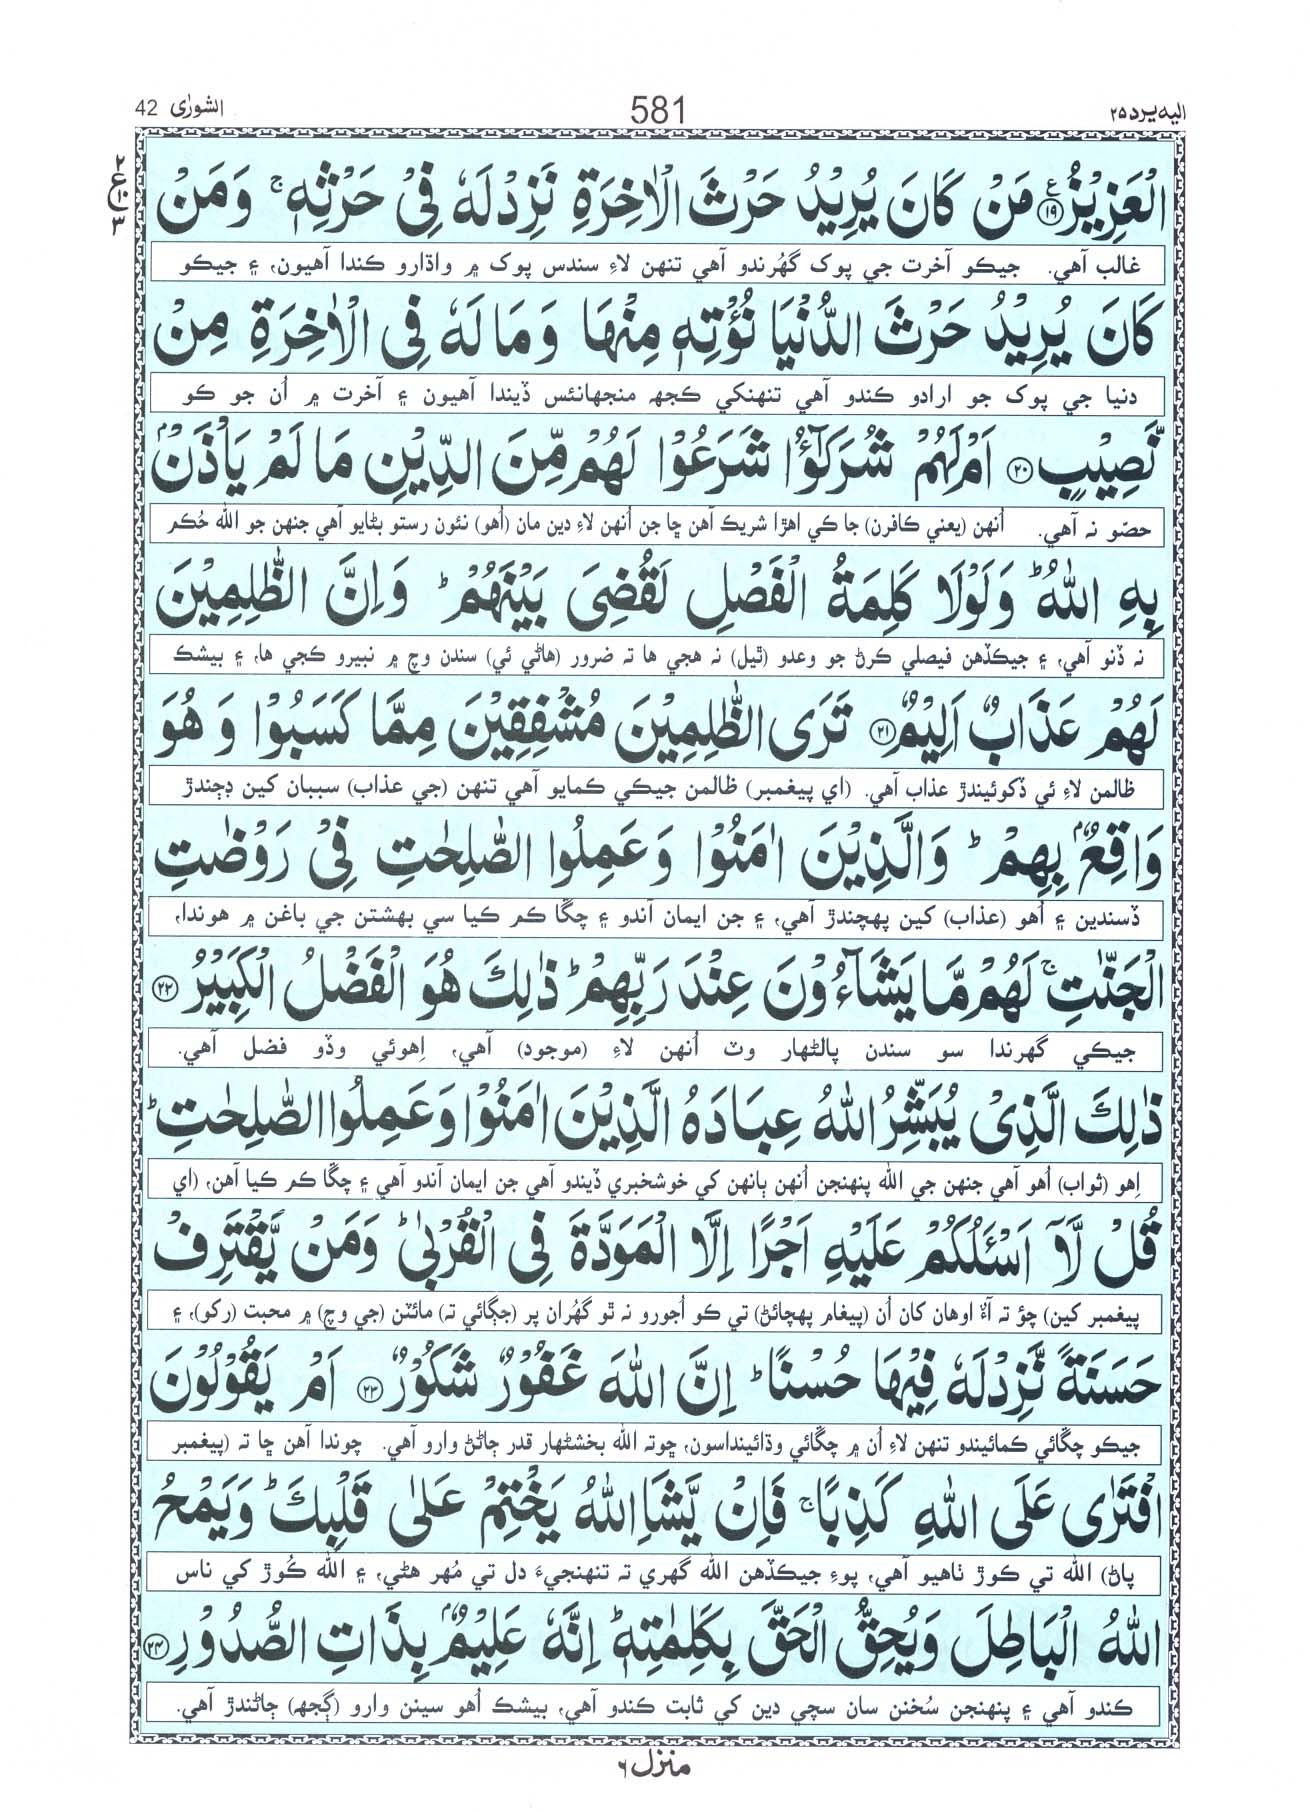 اليه يرد ٢٥ 581 الشورٰى 42
٢ ع ١٠ ٣
الْعَزِيْزُ ؑ ۱۹ مَنْ كَانَ يُرِيْدُ حَرْثَ الْاٰخِرَةِ نَزِدْ لَهٗ فِيْ حَرْثِهٖ ۚ وَمَنْ
غالب آهي. جيڪو آخرت جي پوک گهُرندو آهي تنهن لاءِ سندس پوک ۾ واڌارو ڪندا آهيون، ۽ جيڪو
كَانَ يُرِيْدُ حَرْثَ الدُّنْيَا نُؤْتِهٖ مِنْهَا وَمَا لَهٗ فِي الْاٰخِرَةِ مِنْ
دنيا جي پوک جو ارادو ڪندو آهي تنهنکي ڪجهه منجهانئس ڏيندا آهيون ۽ آخرت ۾ اُن جو ڪو
نَّصِيْبٍ ۲۰ اَمْ لَهُمْ شُرَكٰٓؤُا شَرَعُوْا لَهُمْ مِّنَ الدِّيْنِ مَا لَمْ يَاْذَنْۢ
حصّو نہ آهي. اُنهن (يعني ڪافرن) جا ڪي اهڙا شريڪ آهن ڇا جن اُنهن لاءِ دين مان (اُهو) نئون رستو بڻايو آهي جنهن جو الله حُڪم
بِهِ اللّٰهُ ؕ وَلَوْلَا كَلِمَةُ الْفَصْلِ لَقُضِيَ بَيْنَهُمْ ؕ وَاِنَّ الظّٰلِمِيْنَ
نہ ڏنو آهي، ۽ جيڪڏهن فيصلي ڪرڻ جو وعدو (ٿيل) نہ هجي ها تہ ضرور (هاڻي ئي) سندن وچ ۾ نبيرو ڪجي ها، ۽ بيشڪ
لَهُمْ عَذَابٌ اَلِيْمٌ ۲۱ تَرَى الظّٰلِمِيْنَ مُشْفِقِيْنَ مِمَّا كَسَبُوْا وَهُوَ
ظالمن لاءِ ئي ڏکوئيندڙ عذاب آهي. (اي پيغمبر) ظالمن جيڪي ڪمايو آهي تنهن (جي عذاب) سببان کين ڊڄندڙ
وَاقِعٌۢ بِهِمْ ؕ وَالَّذِيْنَ اٰمَنُوْا وَعَمِلُوا الصّٰلِحٰتِ فِيْ رَوْضٰتِ
ڏسندين ۽ اُهو (عذاب) کين پهچندڙ آهي، ۽ جن ايمان آندو ۽ چڱا ڪم ڪيا سي بهشتن جي باغن ۾ هوندا،
الْجَنّٰتِ ۚ لَهُمْ مَّا يَشَآءُوْنَ عِنْدَ رَبِّهِمْ ؕ ذٰلِكَ هُوَ الْفَضْلُ الْكَبِيْرُ ۲۲
جيڪي گهرندا سو سندن پالڻهار وٽ اُنهن لاءِ (موجود) آهي، اِهوئي وڏو فضل آهي.
ذٰلِكَ الَّذِيْ يُبَشِّرُ اللّٰهُ عِبَادَهُ الَّذِيْنَ اٰمَنُوْا وَعَمِلُوا الصّٰلِحٰتِ ؕ
اِهو (ثواب) اُهو آهي جنهن جي الله پنهنجن اُنهن ٻانهن کي خوشخبري ڏيندو آهي جن ايمان آندو آهي ۽ چڱا ڪم ڪيا آهن، (اي
قُلْ لَّاۤ اَسْـَٔلُكُمْ عَلَيْهِ اَجْرًا اِلَّا الْمَوَدَّةَ فِي الْقُرْبٰى ؕ وَمَنْ يَّقْتَرِفْ
پيغمبر کين) چؤ تہ آءٌ اوهان کان اُن (پيغام پهچائڻ) تي ڪو اُجورو نہ ٿو گهُران پر (جڳائي تہ) مائٽن (جي وچ) ۾ محبت (رکو)، ۽
حَسَنَةً نَّزِدْ لَهٗ فِيْهَا حُسْنًا ؕ اِنَّ اللّٰهَ غَفُوْرٌ شَكُوْرٌ ۲۳ اَمْ يَقُوْلُوْنَ
جيڪو چڱائي ڪمائيندو تنهن لاءِ اُن ۾ چڱائي وڌائينداسون، ڇوتہ الله بخشڻهار قدر ڄاڻڻ وارو آهي. چوندا آهن ڇا تہ (پيغمبر
افْتَرٰى عَلَى اللّٰهِ كَذِبًا ۚ فَاِنْ يَّشَاِ اللّٰهُ يَخْتِمْ عَلٰى قَلْبِكَ ؕ وَيَمْحُ
پاڻ) الله تي ڪوڙ ٺاهيو آهي، پوءِ جيڪڏهن الله گهري تہ تنهنجيءَ دل تي مُهر هڻي، ۽ الله ڪُوڙ کي ناس
اللّٰهُ الْبَاطِلَ وَيُحِقُّ الْحَقَّ بِكَلِمٰتِهٖ ؕ اِنَّهٗ عَلِيْمٌۢ بِذَاتِ الصُّدُوْرِ ۲۴
ڪندو آهي ۽ پنهنجن سُخنن سان سچي دين کي ثابت ڪندو آهي، بيشڪ اُهو سينن وارو (ڳجهه) ڄاڻندڙ آهي.
منزل ٦